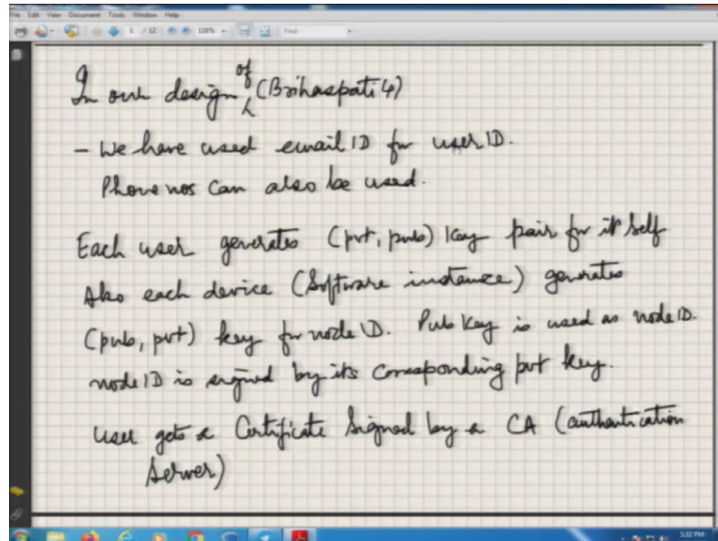 File Edit View Document Tools Window Help
1 / 12 110% Find
In our design of (Brihaspati 4)
- We have used email ID for user ID.
Phone nos can also be used.
Each user generates (pvt, pub) key pair for it self
Also each device (Software instance) generates
(pub, pvt) key for node ID. Pub key is used as node ID.
node ID is signed by its corresponding pvt key.
User gets a Certificate signed by a CA (authentication
Server)
5:02 PM